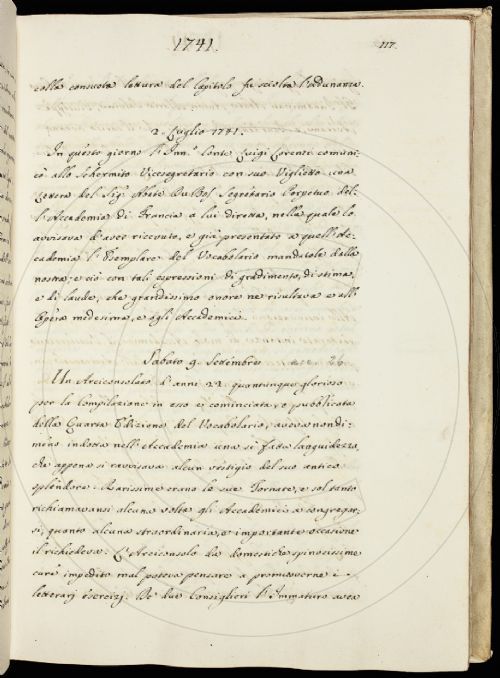 1741.
117.
colla consueta lettura del Capitolo fu sciolta l'adunanza.
2. Luglio 1741.
In questo giorno l'Inn.º Conte Luigi Lorenzi comuni-
cò allo Schermito Vicesegretario con suo Viglietto una
Lettera del Sig.r Abate Du Bos Segretario Perpetuo del-
l'Accademia di Francia a lui diretta, nella quale lo
avvisava d'aver ricevuto, e già presentato a quell'Ac-
cademia l'Esemplare del Vocabolario mandatole dalla
nostra, e ciò con tali espressioni di gradimento, di stima,
e di laude, che grandissimo onore ne risultava e all'
Opera medesima, e agli Accademici.
Sabato 9. Settembre
Un Arciconsolato d'anni 22. quantunque glorioso
per la Compilazione in esso e cominciata, e pubblicata
della Quarta Edizione del Vocabolario, aveva nondi-
meno indotta nell'Accademia una sì fatta languidezza,
che appena si ravvisava alcun vestigio del suo antico
splendore. Rarissime erano le sue Tornate, e sol tanto
richiamavansi alcuna volta gli Accademici a congregar-
si, quanto alcuna straordinaria, e importante occasione
il richiedeva. L'Arciconsolo da domestiche spinosissime
cure impedito mal poteva pensare a promuoverne i
letterarj esercizj. De due Consiglieri l'Immaturo avea